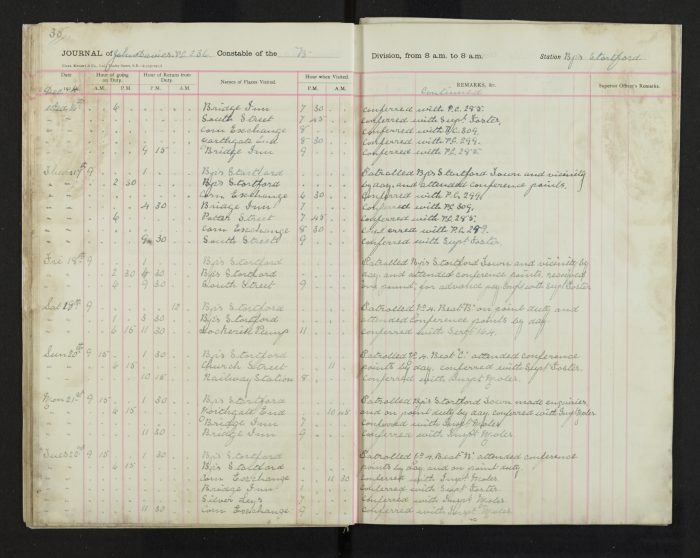 36
JOURNAL of John Davies P.C. 236 Constable of the "B" Division, from 8 a.m. to 8 a.m. Station Bp's Stortford
Date Hour of going on Duty. Hour of Return from Duty. Names of Places Visited. Hour when Visited. REMARKS, &c. Superior Officer's Remarks.
A.M. P.M. P.M. A.M. P.M. A.M.
Dec 1914 Continued
Wed 16th 4 Bridge Inn 7 30 conferred with P.C. 285.
South Street 7 45 conferred with Supt Foster,
Corn Exchange 8 conferred with P.C. 309,
Northgate End 8 30 conferred with P.C. 299.
9 15 Bridge Inn 9 conferred with P.C. 285
Thurs 17th 9 1 Bp's Stortford Patrolled Bp's Stortford Town and vicinity
2 30 Bp's Stortford by day, and attended conference points.
Corn Exchange 6 30 Conferred with P.C. 299.
4 30 Bridge Inn 7 Conferred with P.C. 309,
4 Potter Street 7 45 conferred with P.C. 285.
Corn Exchange 8 30 conferred with P.C. 289.
9 30 South Street 9 conferred with Supt Foster,
Fri 18th 9 1 Bp's Stortford Patrolled Bp's Stortford Town and vicinity by
2 30 4 30 Bp's Stortford day, and attended conference points, received
4 9 30 South Street 9 one pound, for advance pay, Conf'd with Supt Foster
Sat 19th 9 12 Bp's Stortford Patrolled No 4. Beat "B" on point duty, and
1 3 30 Bp's Stortford attended Conference points by day
6 15 11 30 Hockerill Pump 11 conferred with Sergt 164.
Sun 20th 9 15 1 30 Bp's Stortford Patrolled No 4. Beat "C" attended conference
4 15 Church Street 11 points by day, conferred with Supt Foster.
10 15 Railway Station 8 Conferred with Inspt Moler.
Mon 21st 9 15 1 30 Bp's Stortford Patrolled Bp's Stortford Town made enquiries
4 15 Northgate End 10 45 and on point duty by day, conferred with Inspt Moler
Bridge Inn 7 Conferred with Inspt Moler
11 30 Bridge Inn 9 Conferred with Inspt Moler
Tues 22nd 9 15 1 30 Bp's Stortford Patrolled No 4. Beat "B" attended conference
4 15 Bp's Stortford points by day and on point duty.
Corn Exchange 11 30 Conferred with Inspt Moler
Bridge Inn 1 Conferred with Supt Foster
Silver Leys 7 Conferred with Inspt Moler
11 30 Corn Exchange 9 Conferred with Inspt Moler